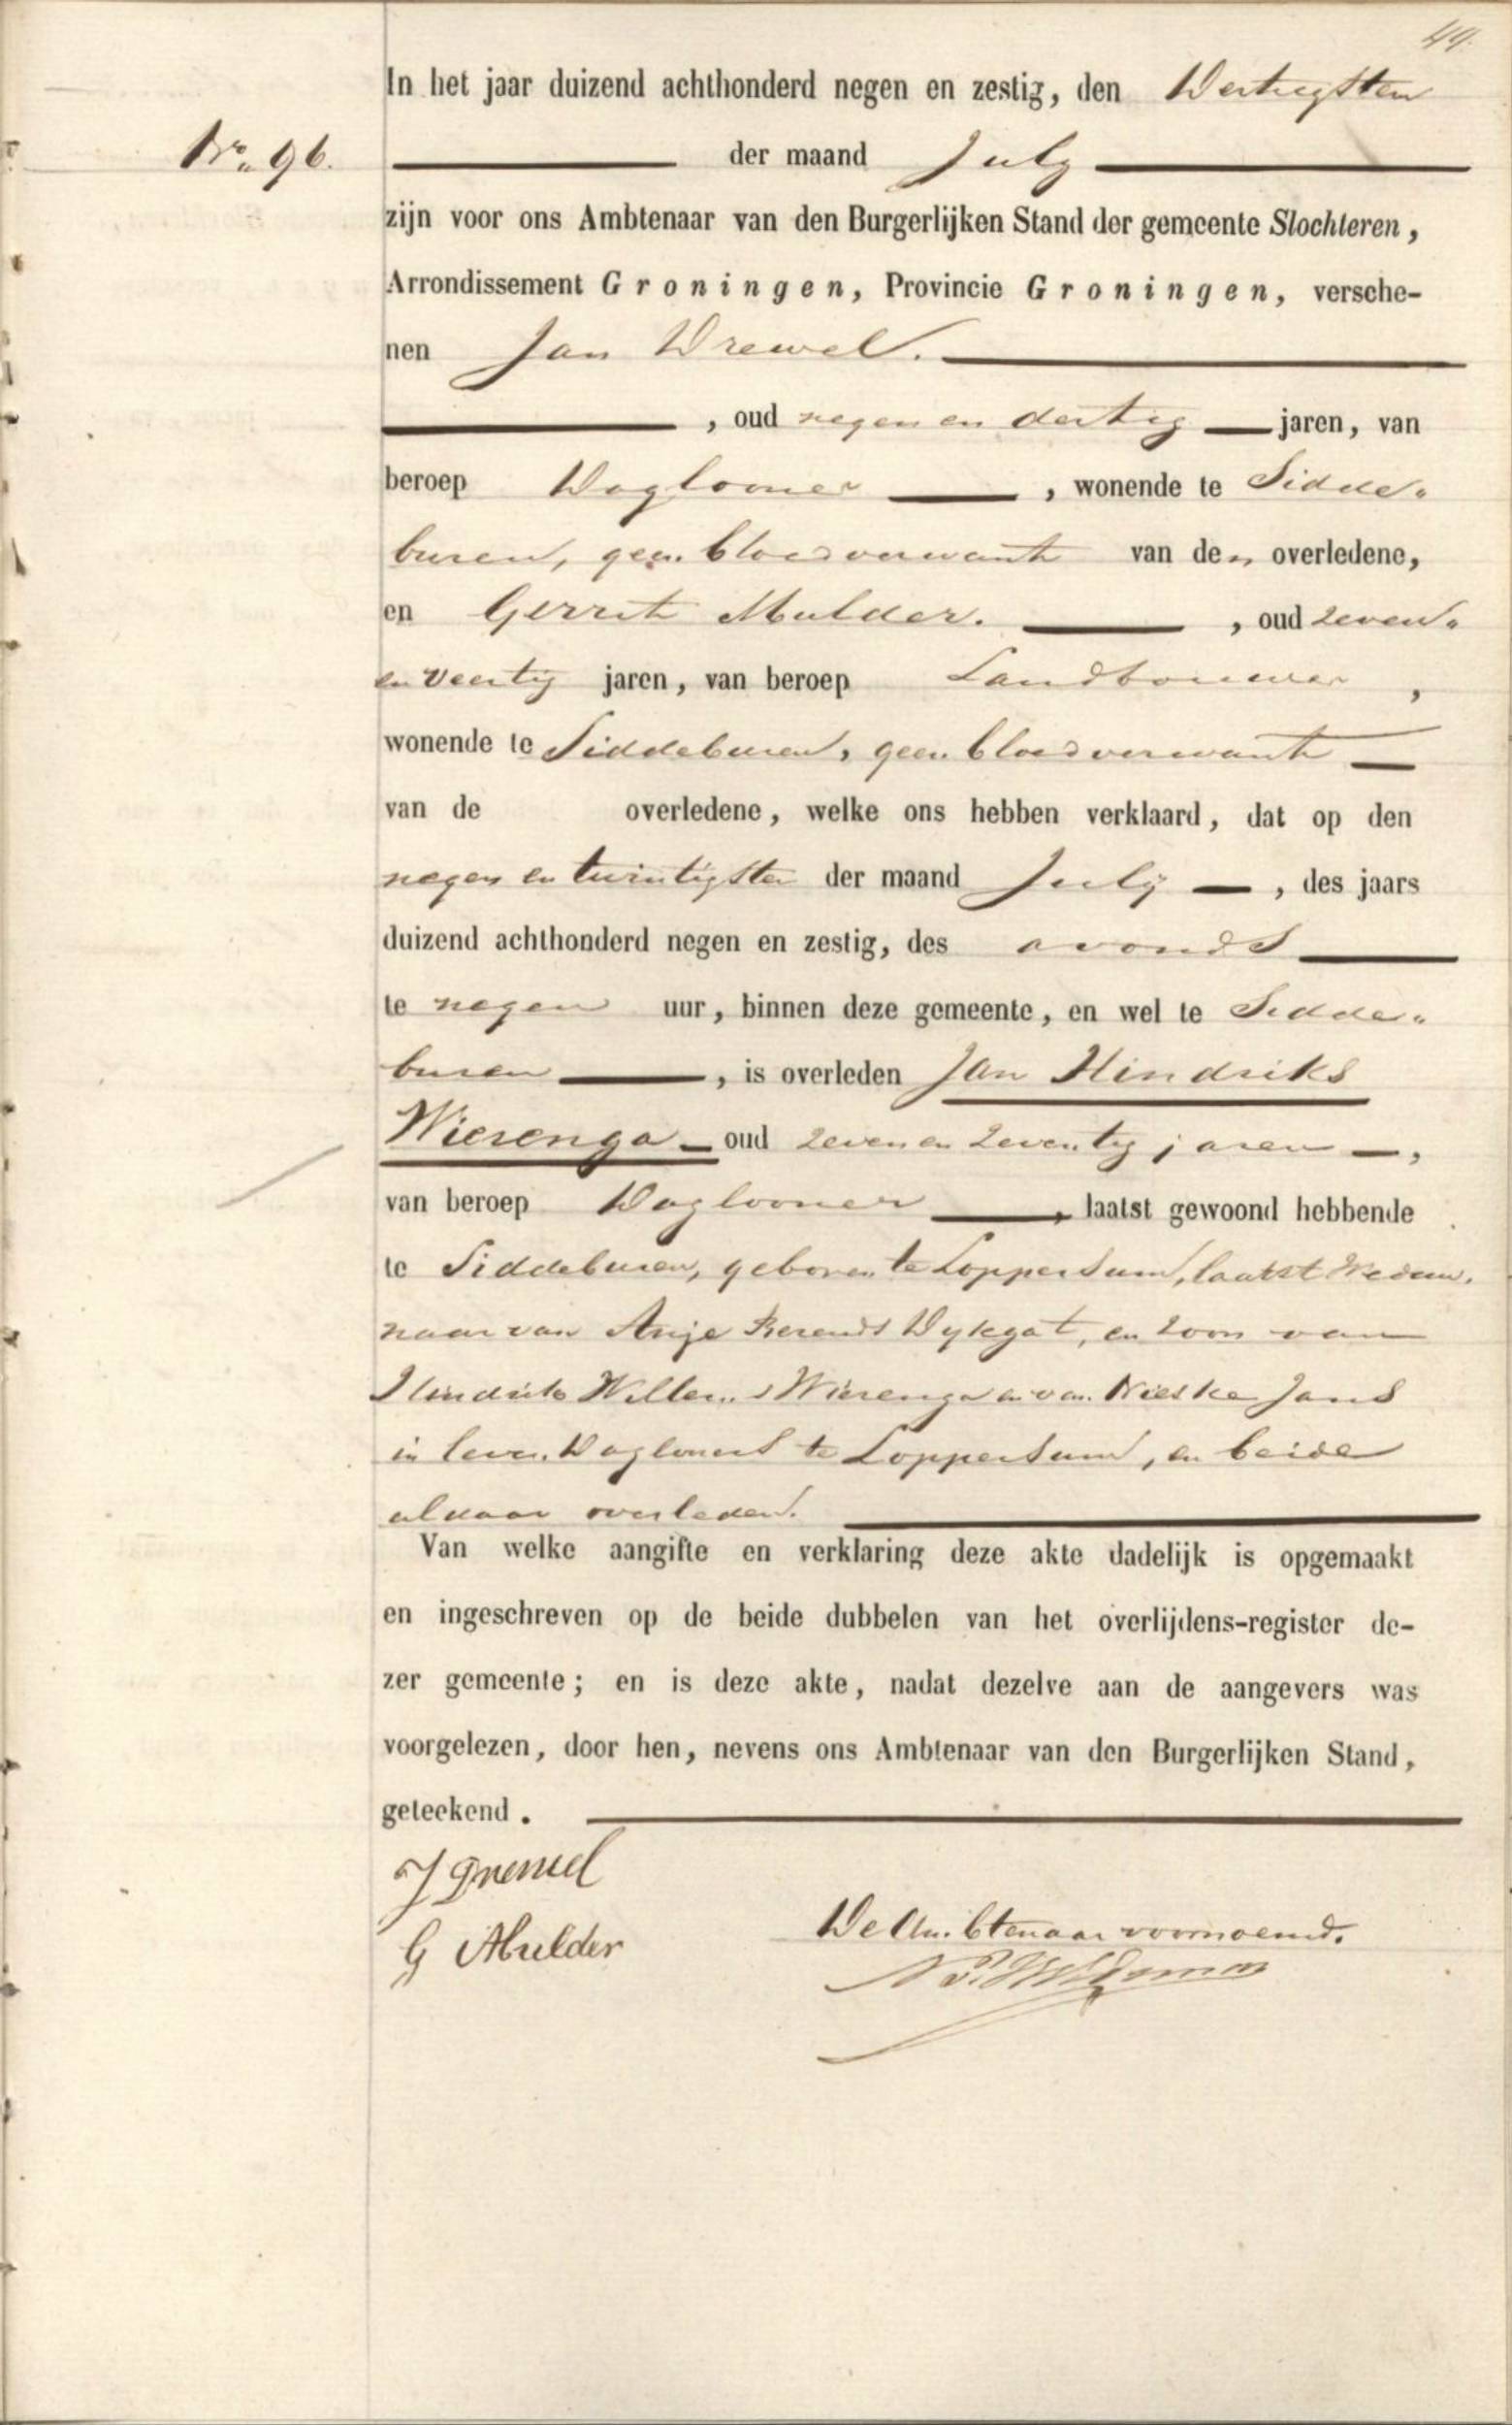 49.
In het jaar duizend achthonderd negen en zestig, den Dertigsten
No. 96.
der maand July
zijn voor ons Ambtenaar van den Burgerlijken Stand der gemeente Slochteren,
Arrondissement Groningen, Provincie Groningen, versche-
nen Jan Drewel.
, oud negen en dertig jaren, van
beroep Daglooner, wonende te Sidde-
buren, geen bloedverwant van den overledene,
en Gerrit Mulder., oud zeven-
en veertig jaren, van beroep Landbouwer,
wonende te Siddeburen, geen bloedverwant
van de overledene, welke ons hebben verklaard, dat op den
negen en twintigsten der maand July, des jaars
duizend achthonderd negen en zestig, des avonds
te negen uur, binnen deze gemeente, en wel te Sidde-
buren, is overleden Jan Hindriks
Wierenga oud zeven en zeventig jaren,
van beroep Daglooner, laatst gewoond hebbende
te Siddeburen, geboren te Loppersum, laatst Weduw-
naar van Anje Berends Dykgat, en zoon van
Hindriks Willems Wierenga en van Nieske Jans
in leven Dagloners te Loppersum, en beide
aldaar overleden.
Van welke aangifte en verklaring deze akte dadelijk is opgemaakt
en ingeschreven op de beide dubbelen van het overlijdens-register de-
zer gemeente; en is deze akte, nadat dezelve aan de aangevers was
voorgelezen, door hen, nevens ons Ambtenaar van den Burgerlijken Stand,
geteekend.
J Drewel
G Mulder
De Ambtenaar voornoemd.